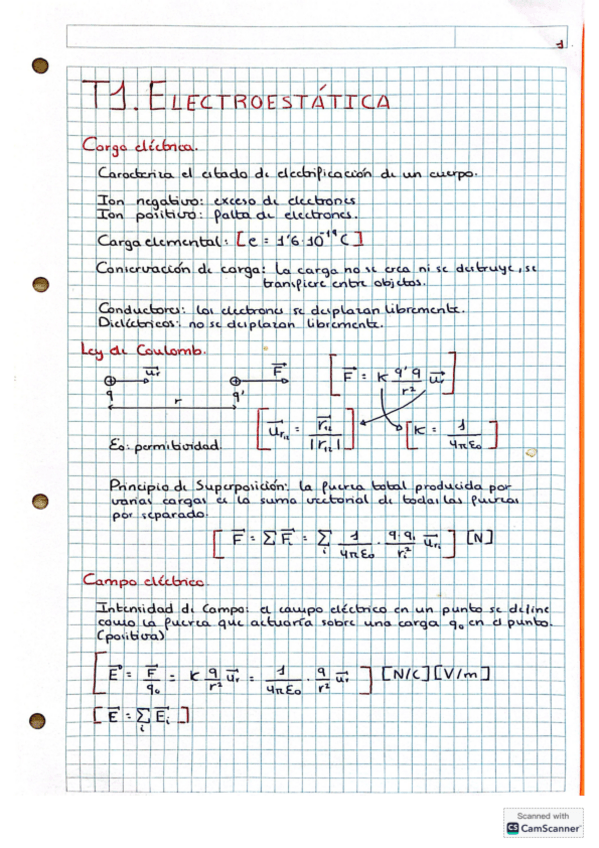 1
T1. ELECTROESTÁTICA
Carga eléctrica.
Caracteriza el estado de electrificación de un cuerpo.
Ion negativo: exceso de electrones
Ion positivo: falta de electrones.
Carga elemental: [e = 1'6·10⁻¹⁹ C]
Conservación de carga: la carga no se crea ni se destruye, se
transfiere entre objetos.
Conductores: los electrones se desplazan libremente.
Dieléctricos: no se desplazan libremente.
Ley de Coulomb.
⊕ u⃗r ⊕ F⃗ [F⃗ = K q'q/r² u⃗r]
q r q'
[u⃗r₁₂ = r⃗₁₂/|r⃗₁₂|] [K = 1/4πε₀]
ε₀: permitividad.
Principio de Superposición: la fuerza total producida por
varias cargas es la suma vectorial de todas las fuerzas
por separado.
[F⃗ = ΣF⃗ᵢ = Σᵢ 1/4πε₀ · q·qᵢ/rᵢ² u⃗rᵢ] [N]
Campo eléctrico.
Intensidad de Campo: el campo eléctrico en un punto se define
como la fuerza que actuaría sobre una carga q₀ en el punto.
(positiva)
[E⃗ = F⃗/q₀ = K q/r² u⃗r = 1/4πε₀ · q/r² u⃗r] [N/C] [V/m]
[E⃗ = Σᵢ E⃗ᵢ]
Scanned with
CS CamScanner